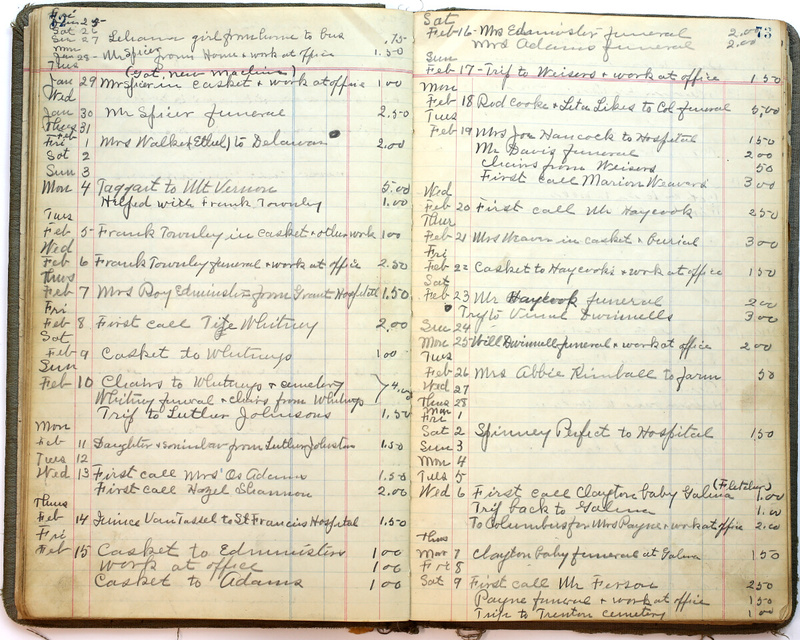 Fri
Jan 25
Sat 26
Sun 27 Lehmann girl from home to bus .75
Mon
Jan 28 - Mr Spier from Home & work at office 1.50
Tues (Got new Machine)
Jan 29 Mr Spier in casket & work at office 1 00
Wed
Jan 30 Mr Spier funeral 2.50
Thurs 31
Feb
Fri 1 Mrs Walker (Ethel) to Delawan 2.00
Sat 2
Sun 3
Mon 4 Taggart to Mt Vernon 5.00
Helped with Frank Townley 1.00
Tues
Feb 5 - Frank Townley in casket & other work 1 00
Wed
Feb 6 Frank Townley funeral & work at office 2.50
Thurs
Feb 7 Mrs Roy Edminster from Grant Hospital 1.50
Fri
Feb 8 First call Whitney 2.00
Sat
Feb 9 Casket to Whitneys 1 00
Sun
Feb 10 Chairs to Whitneys & cemetery
Whitney funeral & chairs from Whitneys
Trip to Luther Johnsons 1.50
Mon
Feb 11 Daughter & soninlaw from Luther Johnston 1.50
Tues 12
Wed 13 First call Mrs Os Adams 1.50
First call Hazel Shannon 2.00
Thurs
Feb 14 Junice VanTassel to St Francis Hospital 1.50
Fri
Feb 15 Casket to Edminsters 1 00
Work at office 1 00
Casket to Adams 1 00
73
Sat
Feb 16 - Mrs Edminster funeral 2.00
Mrs Adams funeral 2.00
Sun
Feb 17 - Trip to Weisers & work at office 1 50
Mon
Feb 18 Rod Cooke & Leta Likes to Col funeral 5.00
Tues
Feb 19 Mrs Jon Hancock to Hospital 1 50
Mr Davis funeral 2 00
Chairs from Weisers 50
First call Marion Weavers 3 00
Wed
Feb 20 First call Mr Haycook 2 50
Thur
Feb 21 Mrs Weaver in casket & burial 3 00
Fri
Feb 22 Casket to Haycooks & work at office 1 50
Sat
Feb 23 Mr Haycook funeral 2 00
Try to Dwinnells 3 00
Sun 24
Mon 25 Will Dwinnell funeral & work at office 2 00
Tues
Feb 26 Mrs Abbie Kimball to farm 50
Wed 27
Thurs 28
Mar
Fri 1
Sat 2 Spinney Perfect to Hospital 1 50
Sun 3
Mon 4
Tues 5
(Fletcher)
Wed 6 First call Clayton baby Galena 1.00
Trip back to Galena 1.00
To Columbus for Mrs Payne & work at office 2.00
Thurs
Mar 7 Clayton baby funeral at Galena 1 50
Fri 8
Sat 9 First call Mr Ferson 2 50
Payne funeral & work at office 1 50
Trip to Trenton cemetery 1 00